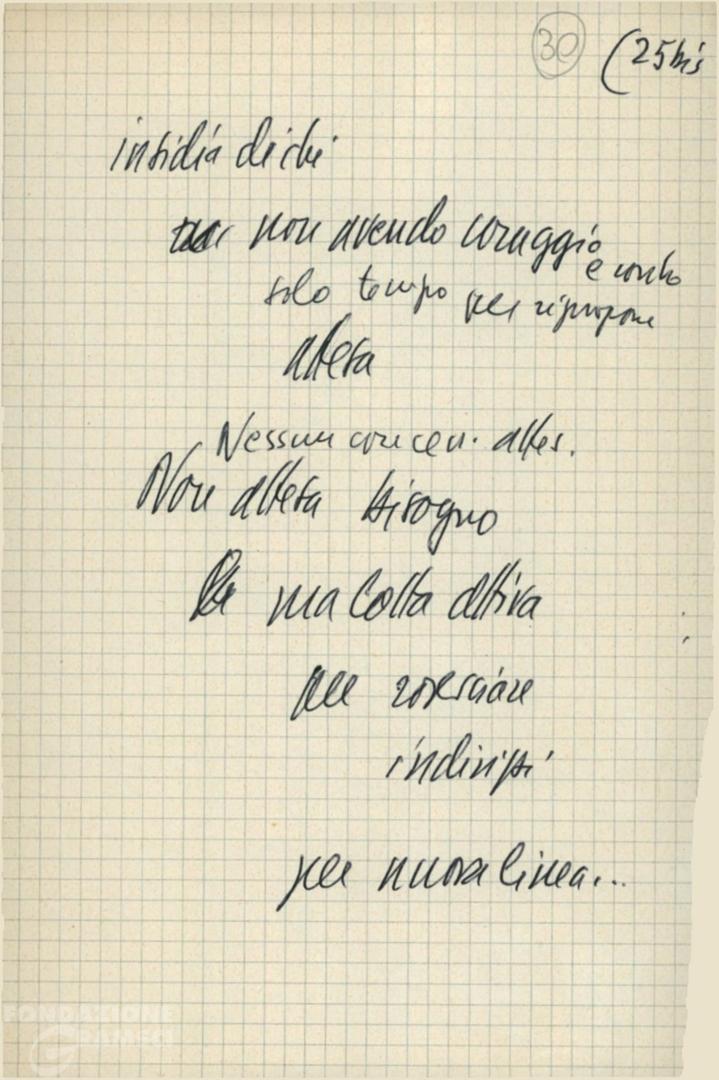 30 (25 bis
insidia di chi
non avendo coraggio
e
solo tempo per riproporre
attesa
Nessun concer. attes.
Non attesa bisogno
ma lotta attiva
per rovesciare
indirizzi
per nuova linea...
FONDAZIONE
GRAMSCI